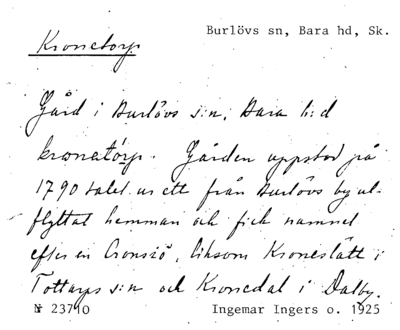 Burlövs sn, Bara hd, Sk.
Kronetorp
Gård i Burlövs s:n, Bara h:d
kronatórp. Gården uppstod på
1790 talet ur ett från Burlövs by ut-
flyttat hemman och fick namnet
efter en Cronsiö, liksom Kroneslätt i
Tottarps s:n och Kronedal i Dalby.
N 23710 Ingemar Ingers o. 1925